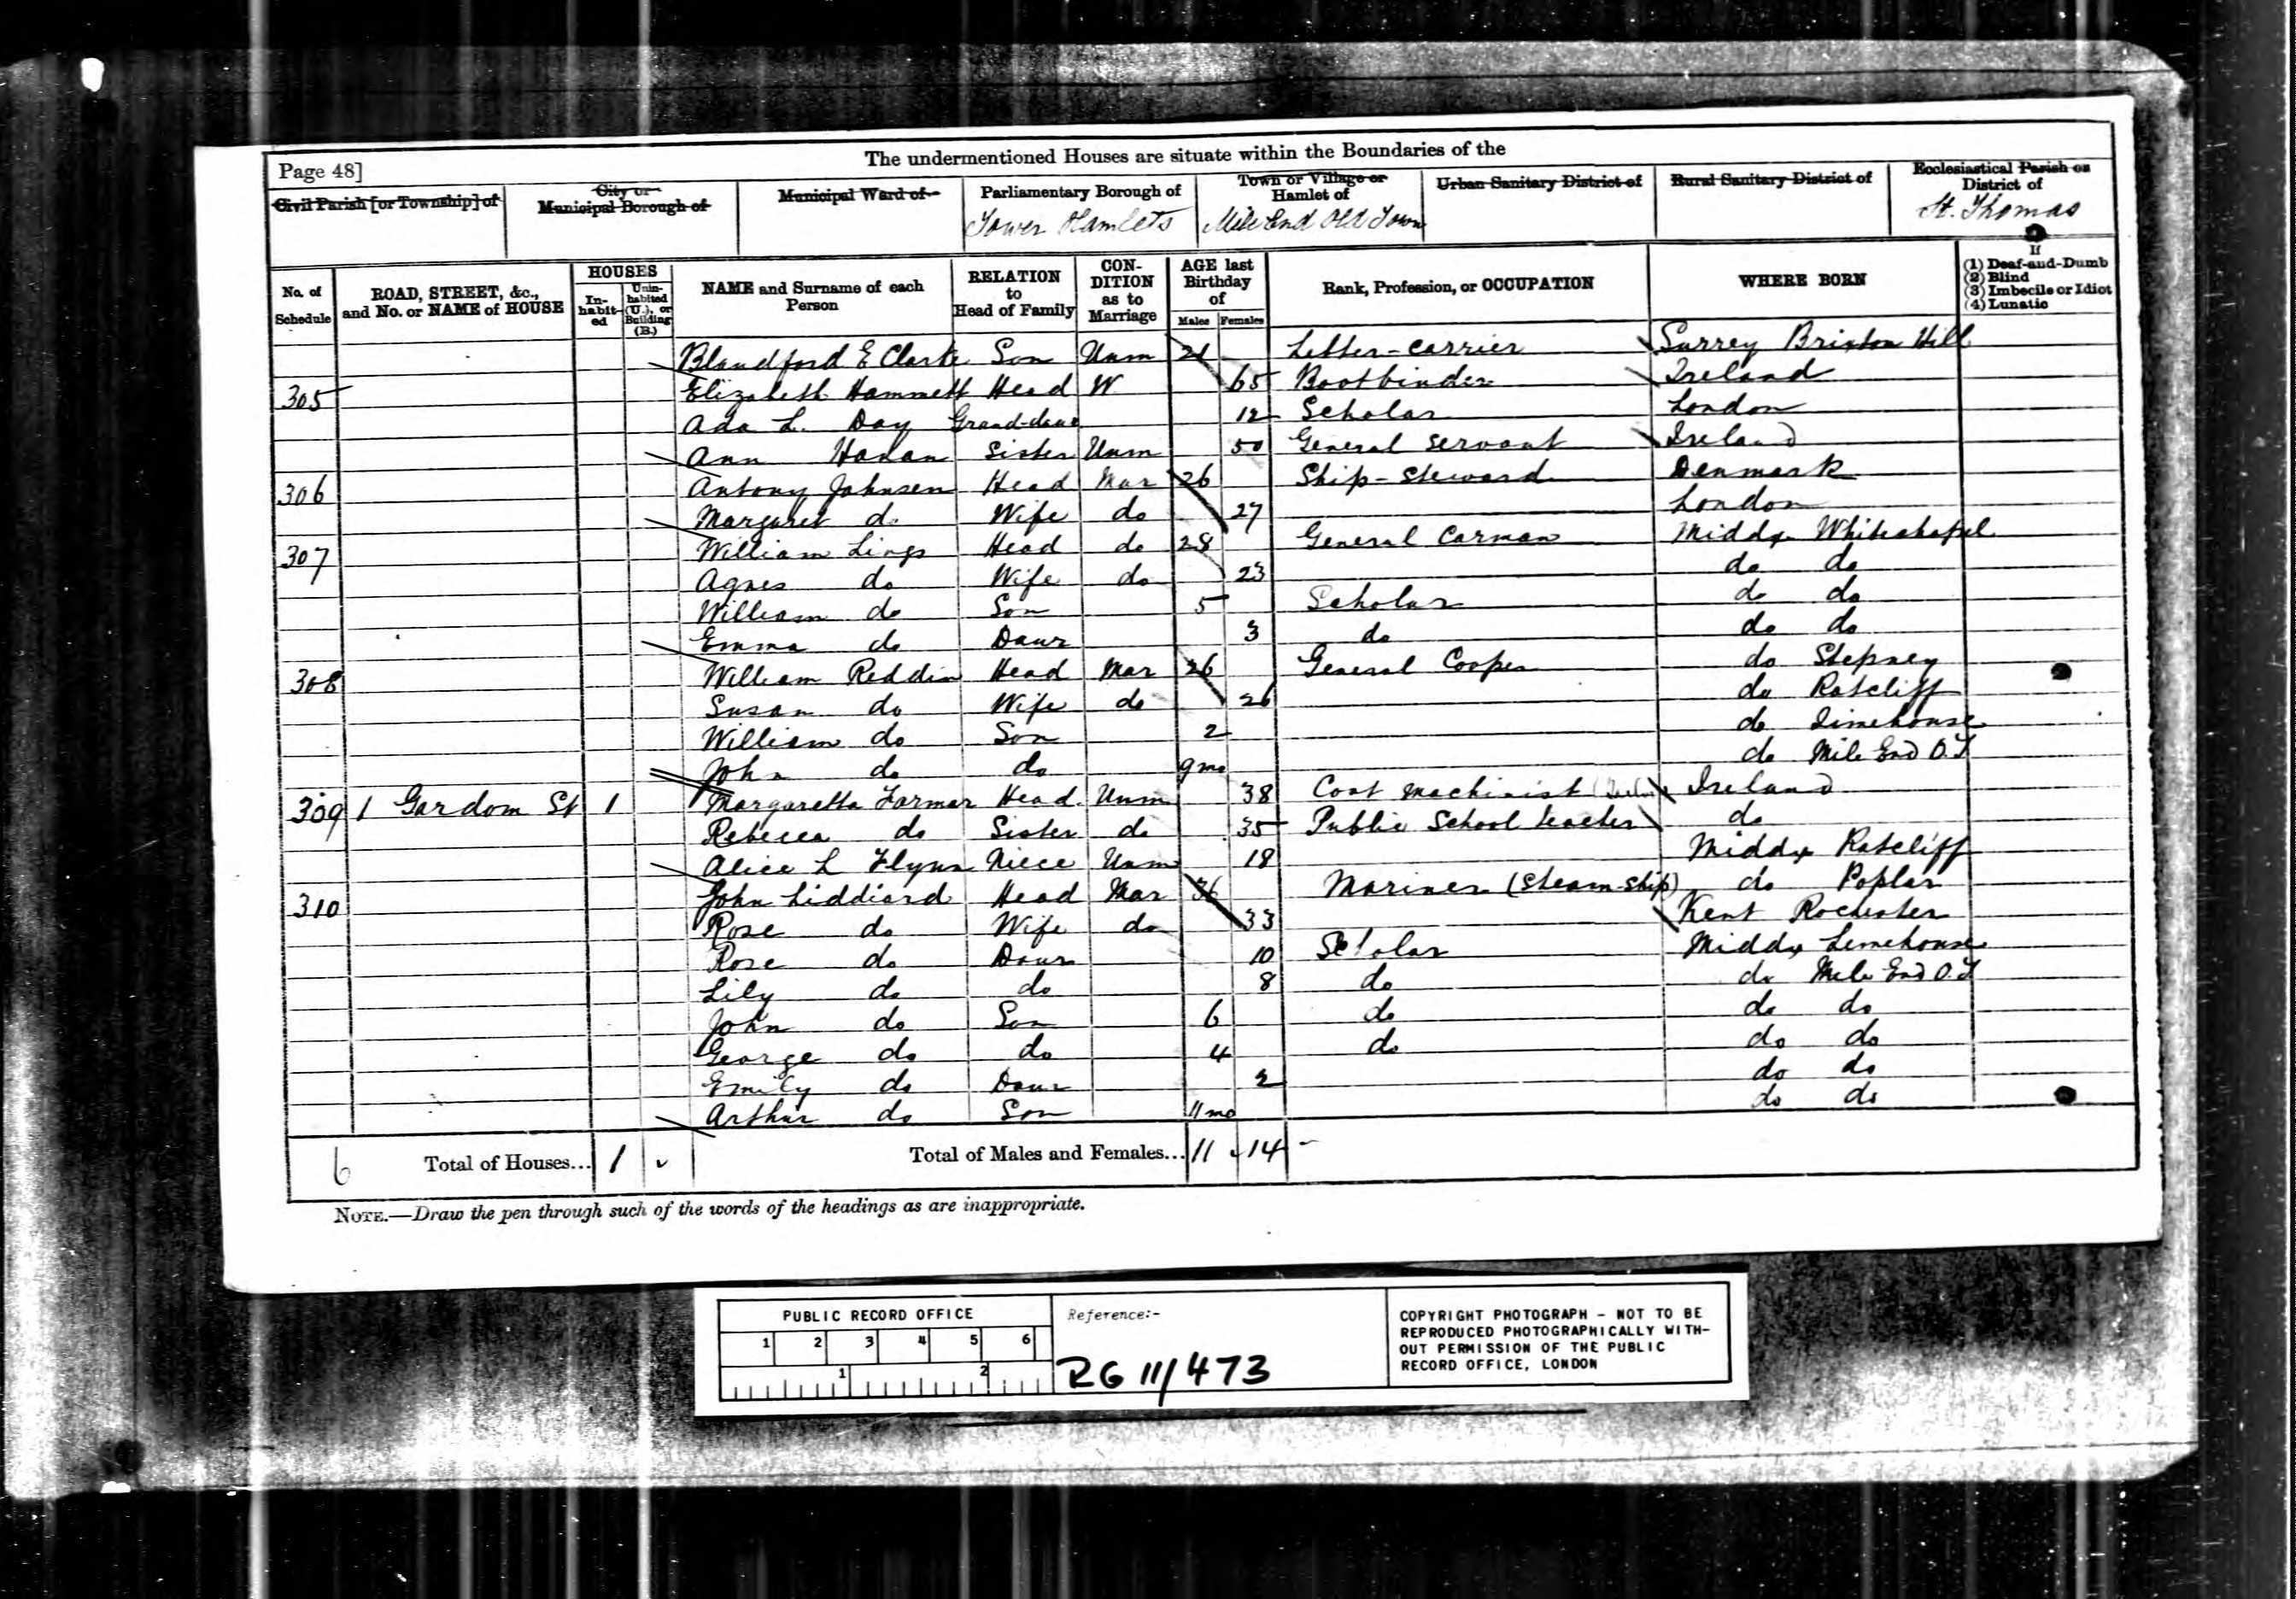 The undermentioned Houses are situate within the Boundaries of the
Page 48]
Civil Parish [or Township] of
City or Municipal Borough of
Municipal Ward of
Parliamentary Borough of
Tower Hamlets
Town or Village or Hamlet of
Mile End Old Town
Urban Sanitary District of
Rural Sanitary District of
Ecclesiastical Parish or District of
St. Thomas
No. of Schedule
ROAD, STREET, &c., and No. or NAME of HOUSE
HOUSES
In-habit-ed
Unin-habited (U.), or Building (B.)
NAME and Surname of each Person
RELATION to Head of Family
CON-DITION as to Marriage
AGE last Birthday of
Males Females
Rank, Profession, or OCCUPATION
WHERE BORN
If
(1) Deaf-and-Dumb
(2) Blind
(3) Imbecile or Idiot
(4) Lunatic
Blandford E Clarke Son Unm 21 Letter-carrier Surrey Brixton Hill
305 Elizabeth Hammett Head W 65 Bootbinder Ireland
Ada L. Day Grand-daur 12 Scholar London
Ann Sister Unm 50 General servant Ireland
306 Antony Johnsen Head Mar 26 Ship-Steward Denmark
Margaret do Wife do 27 London
307 William Lings Head do 28 General Carman Middx Whitechapel
Agnes do Wife do 23 do do
William do Son 5 Scholar do do
Emma do Daur 3 do do do
308 William Reddin Head Mar 26 General Cooper do Stepney
Susan do Wife do 26 do Ratcliff
William do Son 2 do Limehouse
John do do 9mo do Mile End O.T
309 1 Gardom St 1 Margaretta Farmer Head Unm 38 Coat machinist Ireland
Rebecca do Sister do 35 Public School teacher do
Alice L Flynn Niece Unm 18 Middx Ratcliff
310 John Liddiard Head Mar 36 Mariner (Steam-ship) do Poplar
Rose do Wife do 33 Kent Rochester
Rose do Daur 10 Scholar Middx Limehouse
Lily do do 8 do do Mile End O.T
John do Son 6 do do do
George do do 4 do do do
Emily do Daur 2 do do
Arthur do Son 11mo do do
6 Total of Houses... 1 Total of Males and Females... 11 14
NOTE.—Draw the pen through such of the words of the headings as are inappropriate.
PUBLIC RECORD OFFICE
1 2 3 4 5 6
1 2
Reference:-
RG 11/473
COPYRIGHT PHOTOGRAPH - NOT TO BE
REPRODUCED PHOTOGRAPHICALLY WITH-
OUT PERMISSION OF THE PUBLIC
RECORD OFFICE, LONDON